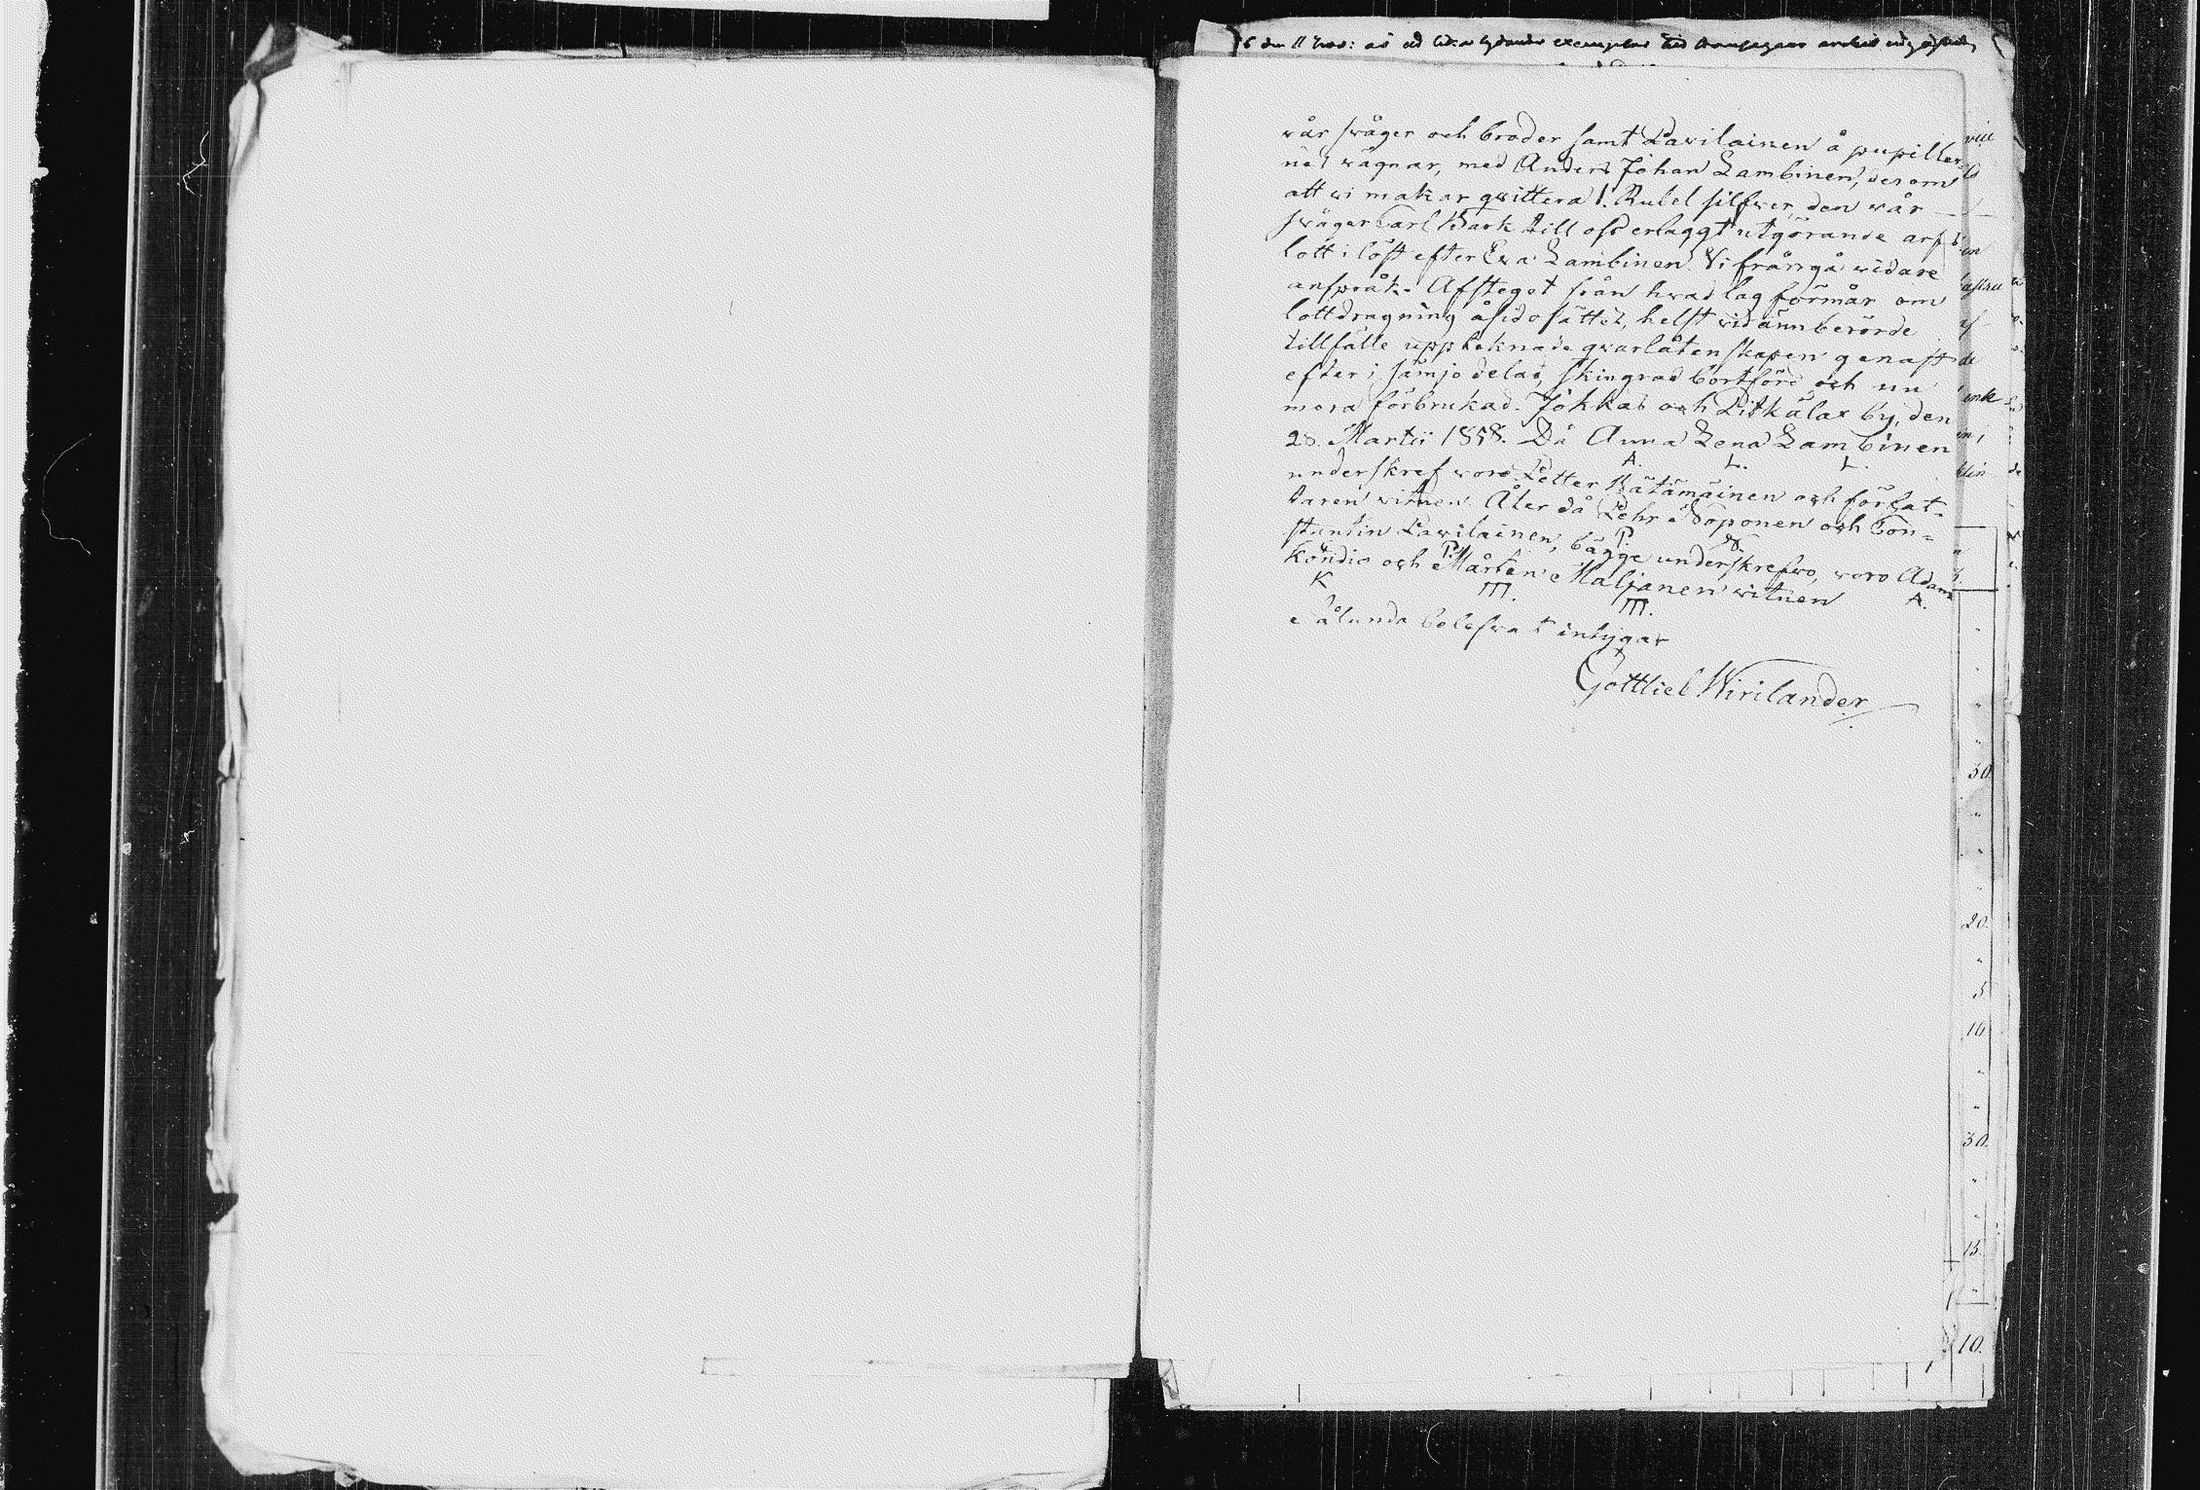 wår swåger och broder samt Pawilainen å pupiller-
nes wägnar, med Anders Johan Lambinen, derom
att wi makar qwittera 1. Rubel silfwer, den wår
swåger Carl Bark till oss erlaggt utgörande arfs
lott i löst efter Ewa Lambinen. Vi frångå widare
anspråk. Afsteget från hwad lag förmår om
lottdragning åsidosättes, helst wid ännberörde
tillfälle uppteknade qwarlåtenskapen genast
efter i sämjo delad, skingrad bortförd och nu
mera förbrukad. Jokkas och Pitkälax by, den
28. Martii 1858. Då Anna Lena Lambinen
A. L. L.
underskref woro Petter Kätämäinen och förfat-
taren witnen. Åter då Pehr Noponen och Con-
P. N.
stantin Pawilainen, bägge underskrefwo, woro Adam
P. A.
Kondio och Mårten Maljanen witnen
K M. M.
Sålunda belefwat intygar
Gottlieb Wirilander
30.
20.
5
10
30.
15.
10.